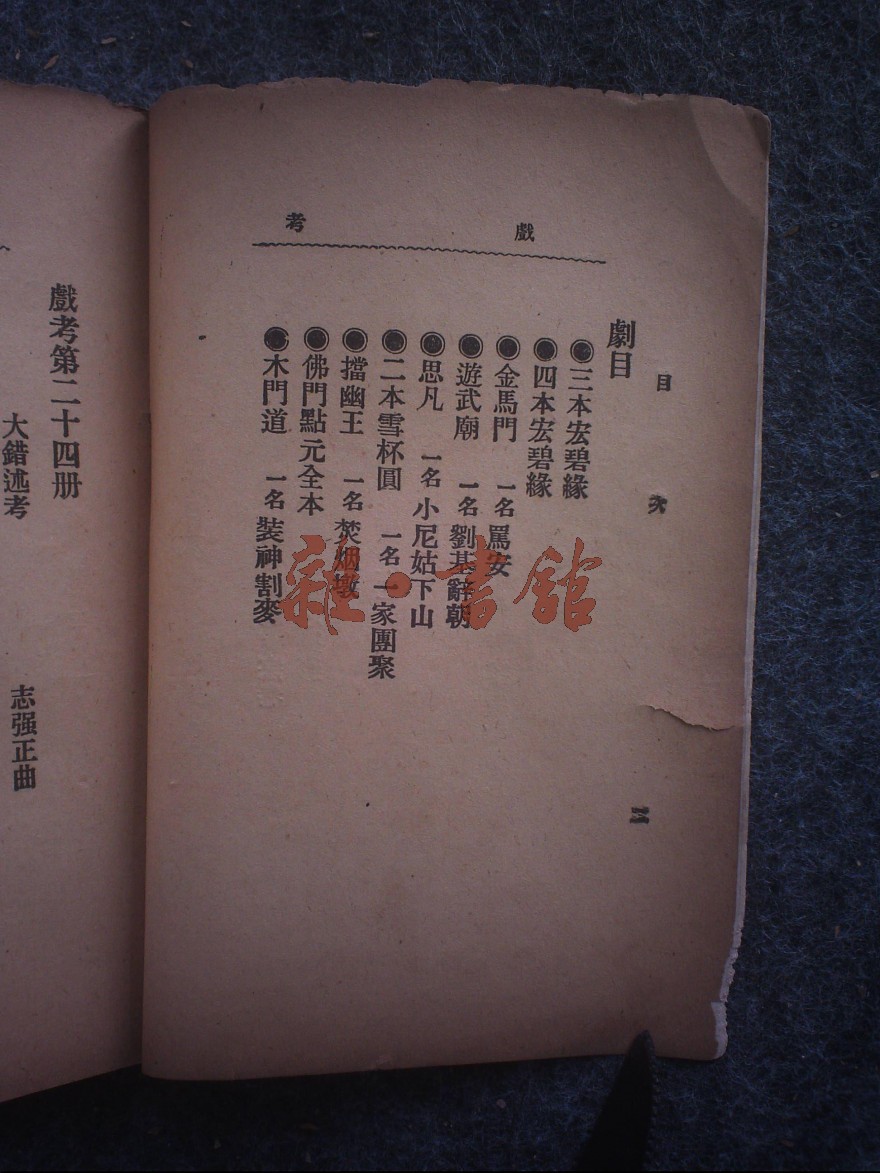 戲考
目次
劇目
●三本宏碧緣
●四本宏碧緣
●金馬門 一名罵安
●遊武廟 一名劉基辭朝
●思凡 一名小尼姑下山
●二本雪杯圓 一名一家團聚
●擋幽王 一名焚烟墩
●佛門點元全本
●木門道 一名裝神割麥
戲考第二十四册
大錯述考 志强正曲
雜·書館